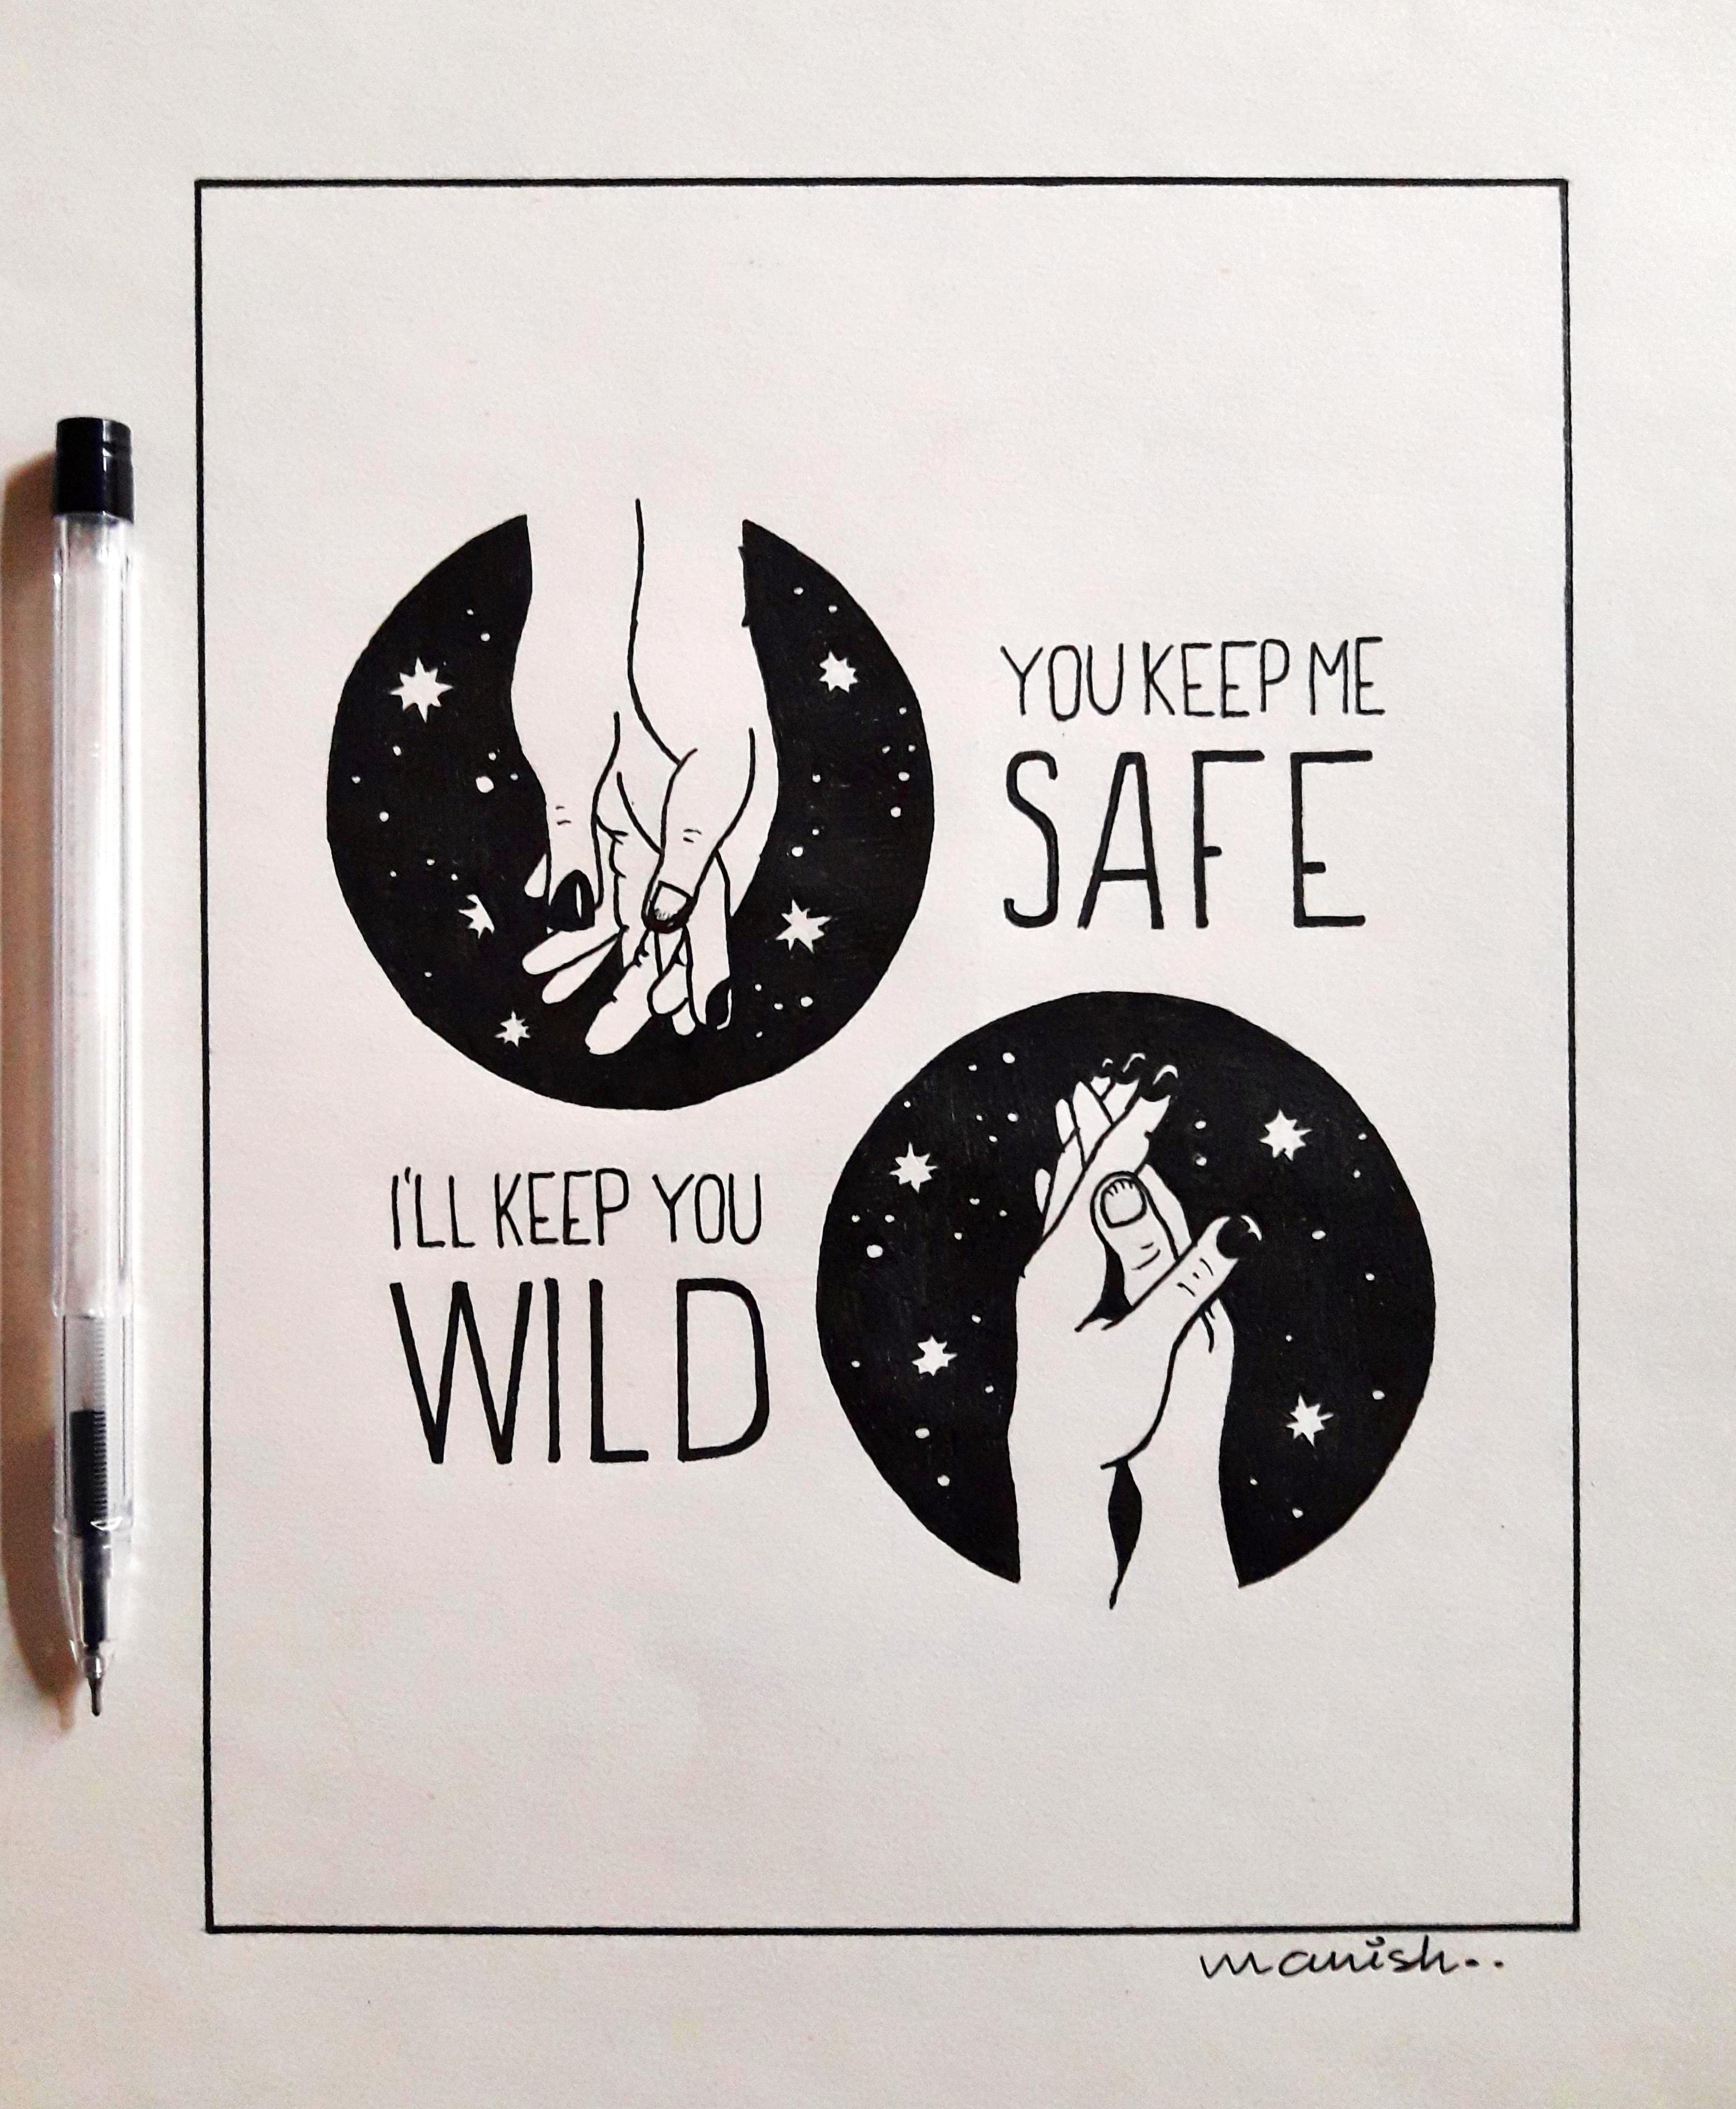 YOU KEEP ME
SAFE
I'LL KEEP YOU
WILD
manish..